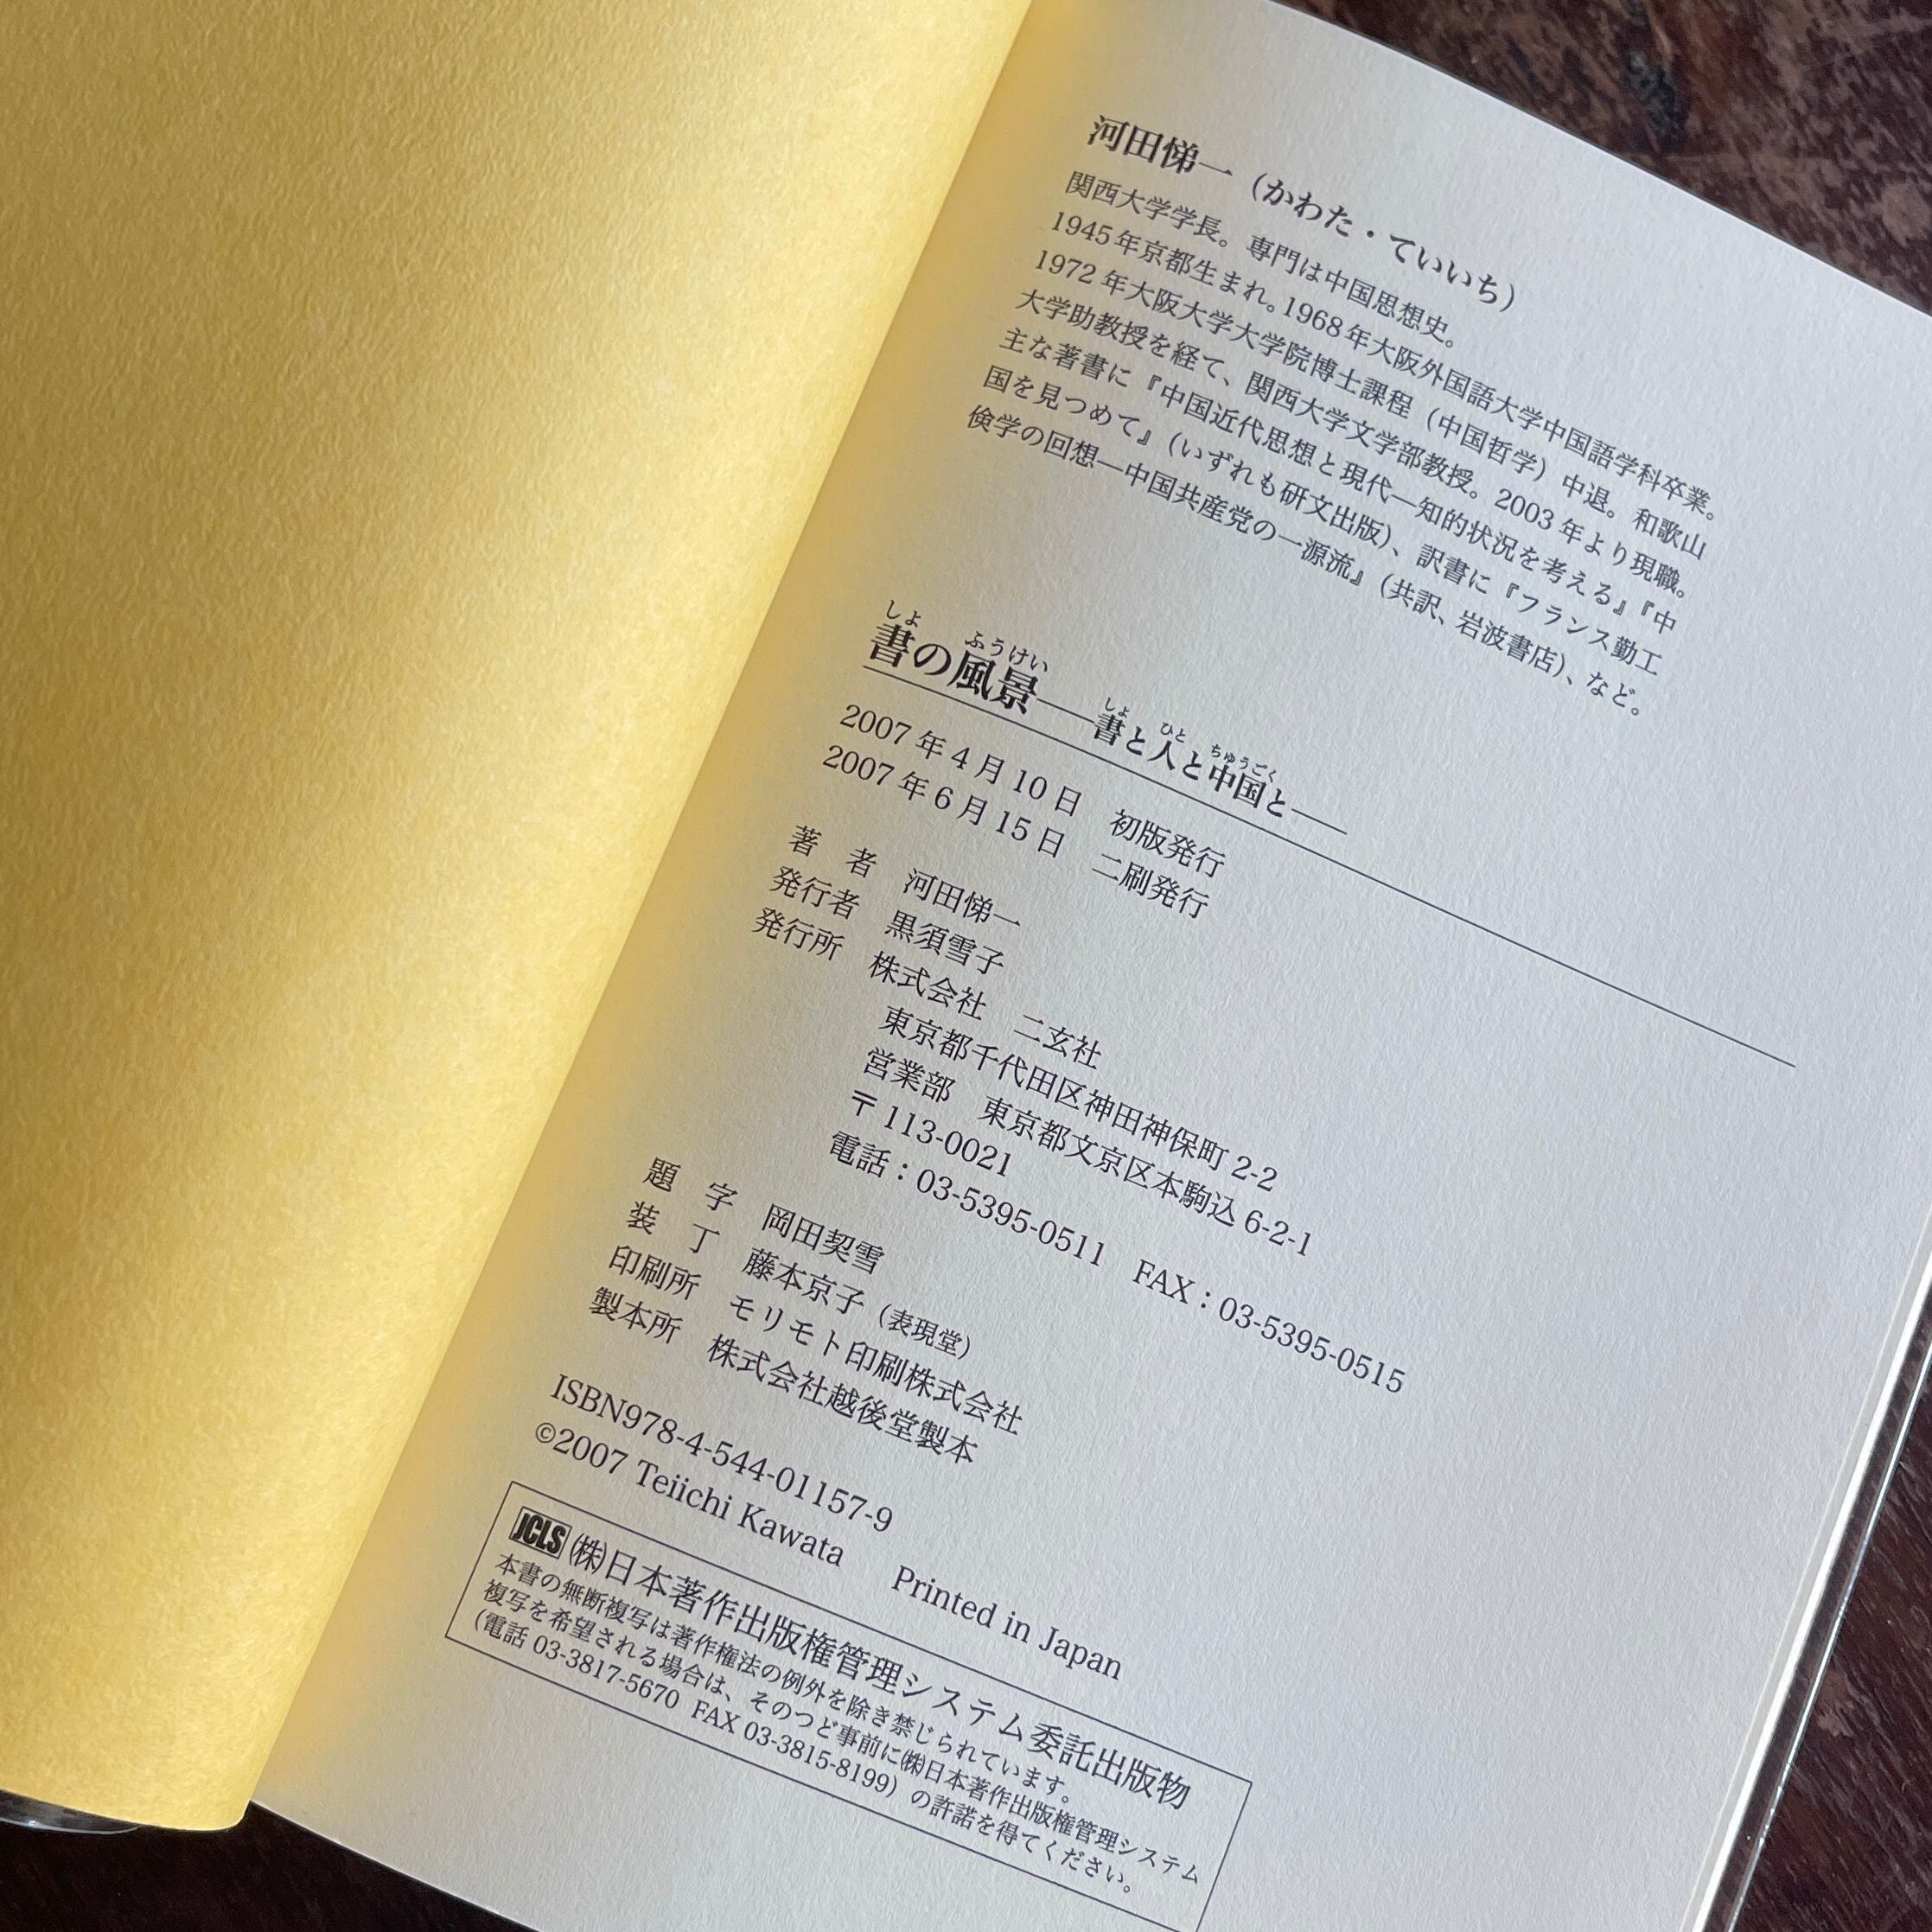 河田悌一（かわた・ていいち）
関西大学学長。専門は中国思想史。
1945年京都生まれ。1968年大阪外国語大学中国語学科卒業。
1972年大阪大学大学院博士課程（中国哲学）中退。和歌山
大学助教授を経て、関西大学文学部教授。2003年より現職。
主な著書に『中国近代思想と現代—知的状況を考える』『中
国を見つめて』（いずれも研文出版）、訳書に『フランス勤工
倹学の回想—中国共産党の一源流』（共訳、岩波書店）、など。
しょ ふうけい しょ ひと ちゅうごく
書の風景——書と人と中国と——
2007年4月10日 初版発行
2007年6月15日 二刷発行
著 者 河田悌一
発行者 黒須雪子
発行所 株式会社 二玄社
東京都千代田区神田神保町2-2
営業部 東京都文京区本駒込6-2-1
〒113-0021
電話：03-5395-0511 FAX：03-5395-0515
題 字 岡田契雪
装 丁 藤本京子（表現堂）
印刷所 モリモト印刷株式会社
製本所 株式会社越後堂製本
ISBN978-4-544-01157-9
©2007 Teiichi Kawata Printed in Japan
JCLS ㈱日本著作出版権管理システム委託出版物
本書の無断複写は著作権法の例外を除き禁じられています。
複写を希望される場合は、そのつど事前に㈱日本著作出版権管理システム
（電話 03-3817-5670 FAX 03-3815-8199）の許諾を得てください。